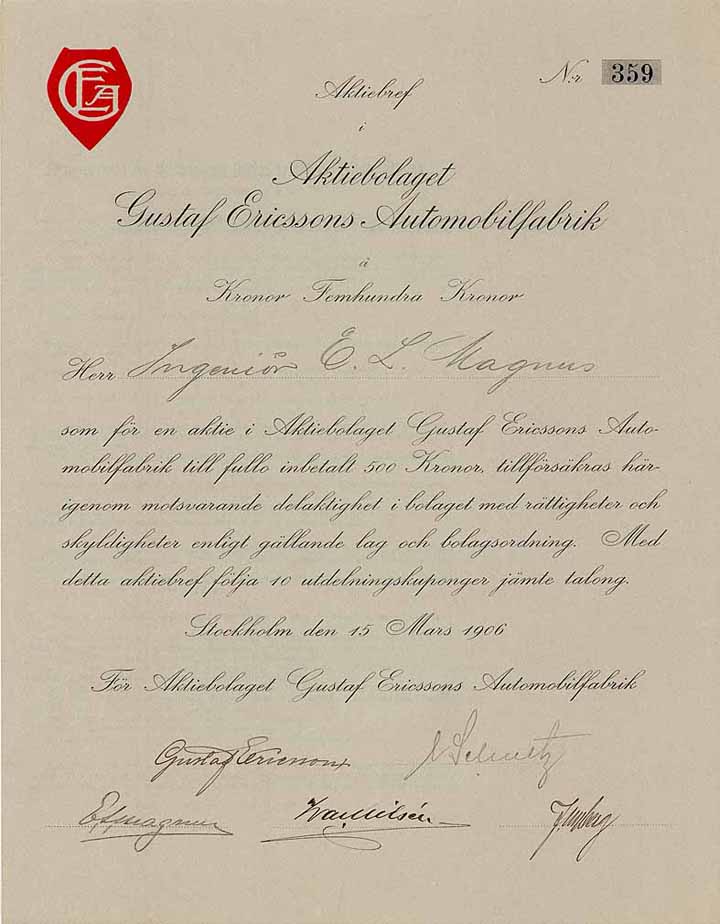 GEA
Aktiebref
N:r 359
i
Aktiebolaget
Gustaf Ericssons Automobilfabrik
à
Kronor Femhundra Kronor
Herr Ingeniör E. L. Magnus
som för en aktie i Aktiebolaget Gustaf Ericssons Auto-
mobilfabrik till fullo inbetalt 500 Kronor, tillförsäkras här-
igenom motsvarande delaktighet i bolaget med rättigheter och
skyldigheter enligt gällande lag och bolagsordning. Med
detta aktiebref följa 10 utdelningskuponger jämte talong.
Stockholm den 15 Mars 1906
För Aktiebolaget Gustaf Ericssons Automobilfabrik
Gustaf Ericsson
E L Magnus